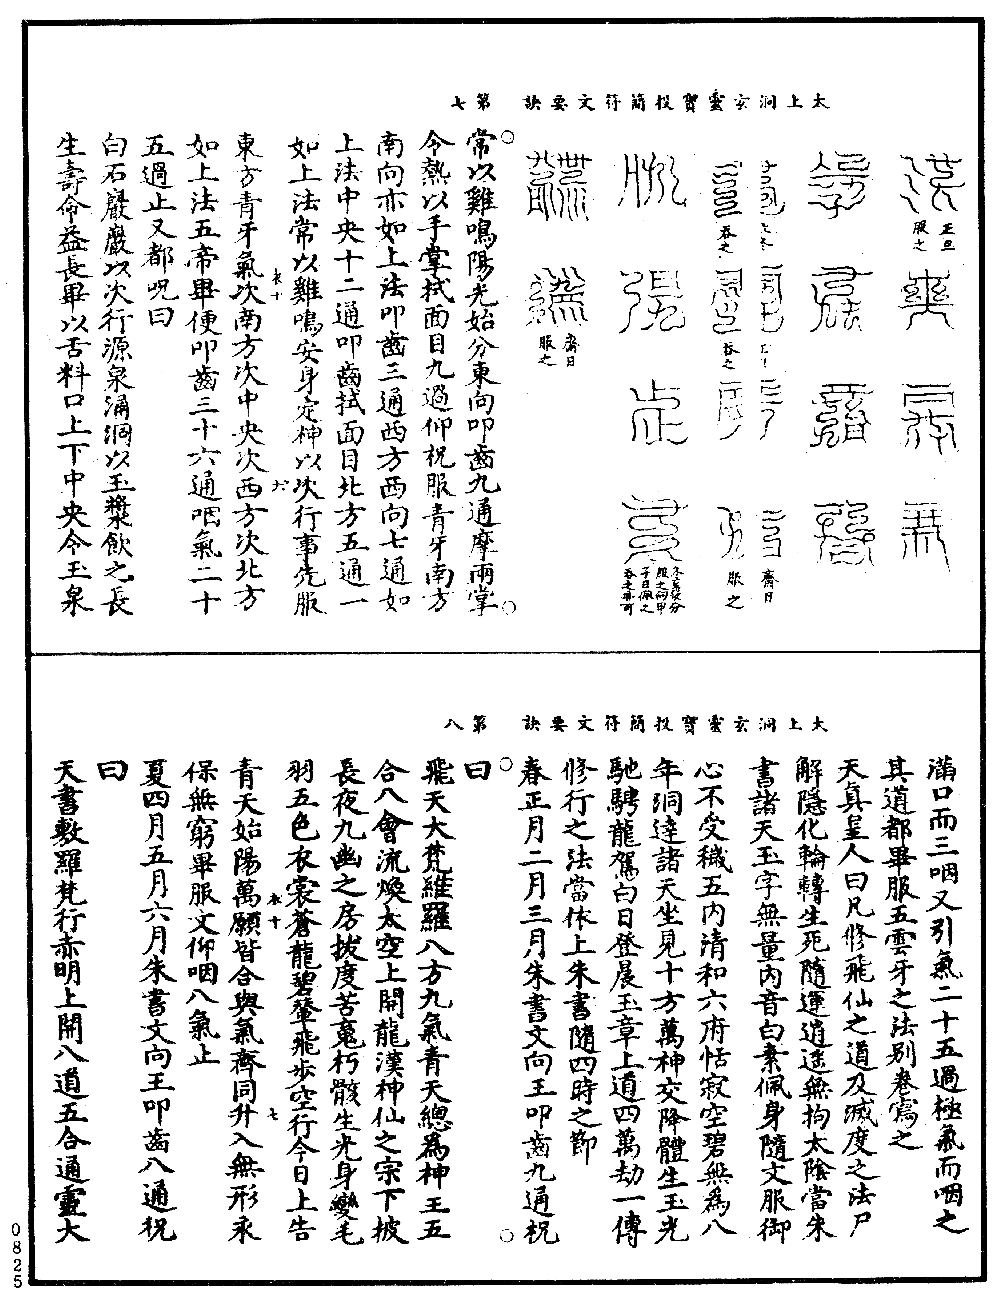 太上洞玄靈寶投簡符文要訣　第七
正旦服之
吞之
吞之
齋日
服之
齋日服之
常以雞鳴陽光始分東向叩齒九通摩兩掌
令熱以手掌拭面目九過仰祝服青牙南方
南向亦如上法叩齒三通西方西向七通如
上法中央十二通叩齒拭面目北方五通一
如上法常以雞鳴安身定神以次行事先服
東方青牙氣次南方次中央次西方次北方
如上法五帝畢便叩齒三十六通咽氣二十
五過止又都呪曰
白石巖巖以次行源泉涌洞以玉漿飲之長
生壽命益長畢以舌料口上下中央令玉泉
太上洞玄靈寶投簡符文要訣　第八
滿口而三咽又引氣二十五過極氣而咽之
其道都畢服五雲牙之法別卷寫之
天真皇人曰凡修飛仙之道及滅度之法尸
解隱化輪轉生死隨運逍遥無拘太陰當朱
書諸天玉字無量內音白素佩身隨文服御
心不受穢五內清和六府恬寂空碧無為八
年洞達諸天坐見十方萬神交降體生玉光
馳騁龍駕白日登晨玉章上道四萬劫一傳
修行之法當依上朱書隨四時之節
春正月二月三月朱書文向王叩齒九通祝
曰
飛天大梵維羅八方九氣青天總為神王五
合八會流煥太空上開龍漢神仙之宗下披
長夜九幽之房拔度苦䰟朽骸生光身變毛
羽五色衣裳蒼龍碧輦飛步空行今日上告
青天始陽萬願皆合與氣齊同升入無形永
保無窮畢服文仰咽八氣止
夏四月五月六月朱書文向王叩齒八通祝
曰
天書敷羅梵行赤明上開八道五合通靈大
0825